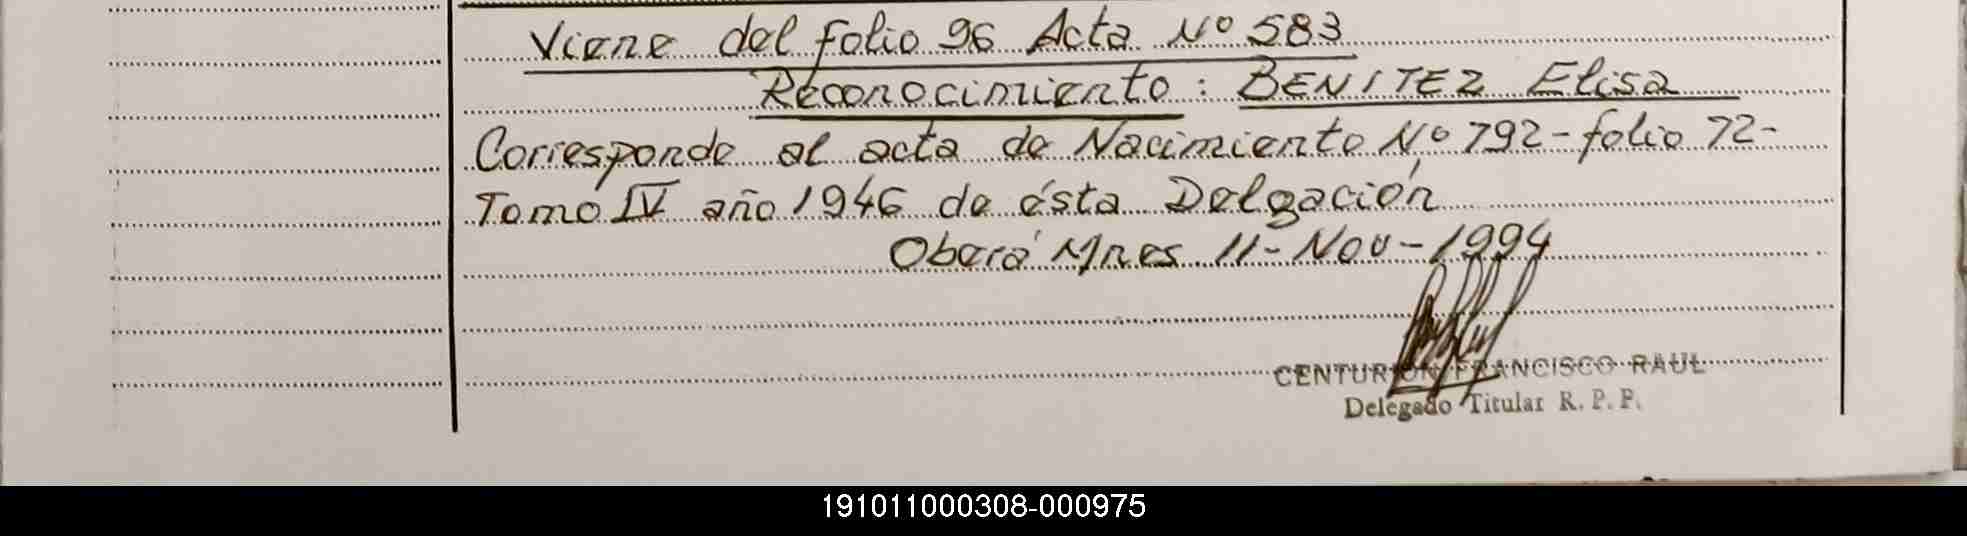 Viene del folio 96 Acta Nº 583
Reconocimiento: BENITEZ Elisa
Corresponde al acta de Nacimiento Nº 792-folio 72-
Tomo IV año 1946 de ésta Delgación
Oberá Mnes 11-Nov-1994
CENTURION FRANCISCO RAUL
Delegado Titular R. P. P.
191011000308-000975